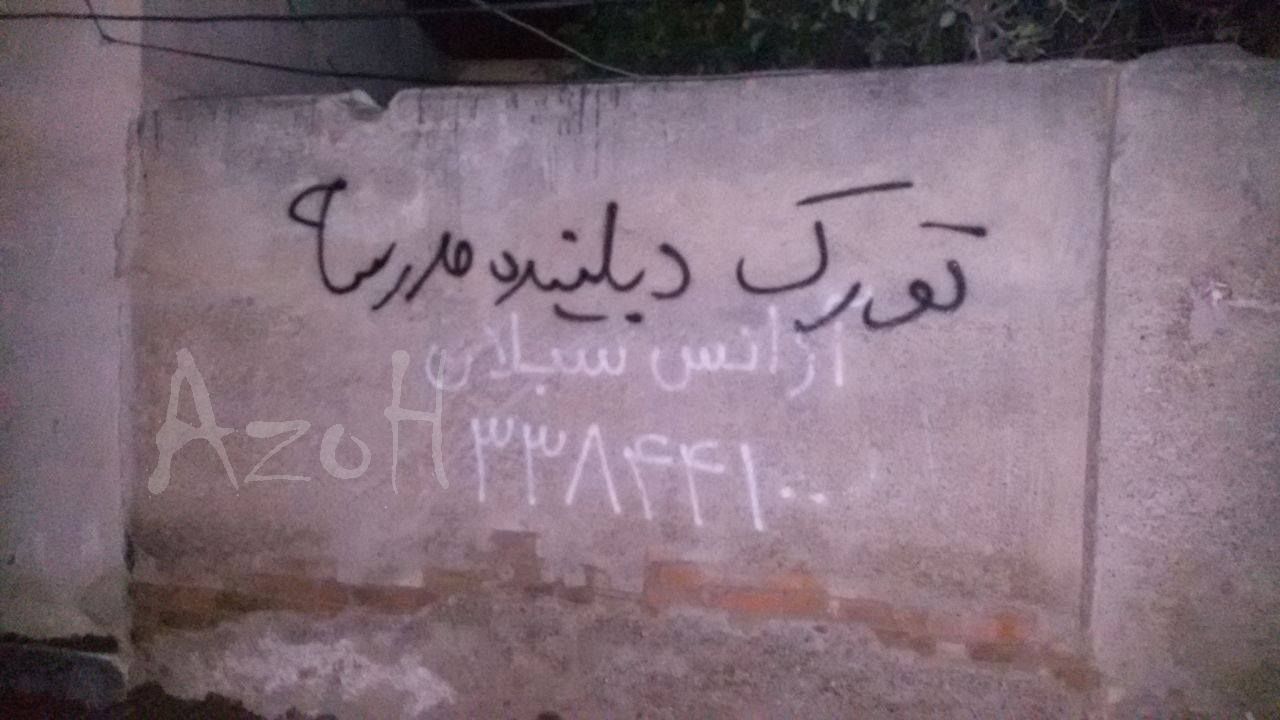 تورک دیلینده مدرسه
آژانس سبلان
۳۳۸۴۴۱۰۰
AzoH